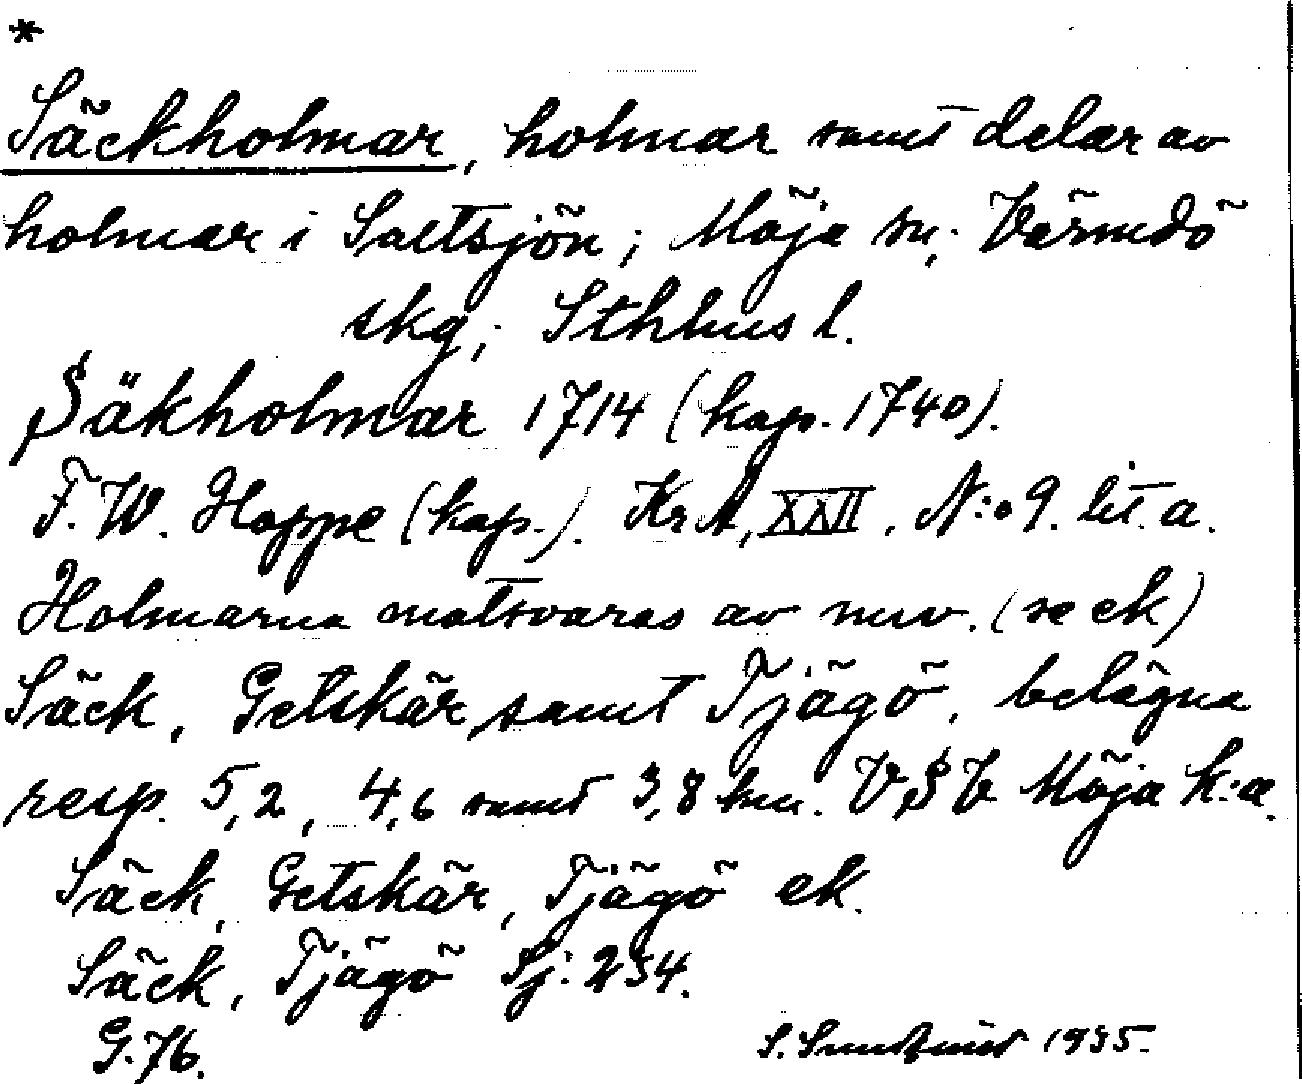 *
Säckholmar, holmar samt delar av
holmar i Saltsjön; Möja sn; Värmdö
skg; Sthlms l.
Säkholmar 1714 (kop. 1740).
F. W. Hoppe (kop.). KrA, XXII. N:o 9. lit. a.
Holmarna motsvaras av nuv. (se ek)
Säck, Getskär samt Tjägö, belägna
resp. 5,2, 4,6 samt 3,8 km. VSV Möja k:a.
Säck, Getskär, Tjägö ek.
Säck, Tjägö Sj: 254.
G. 76.
S. Sundquist 1935.